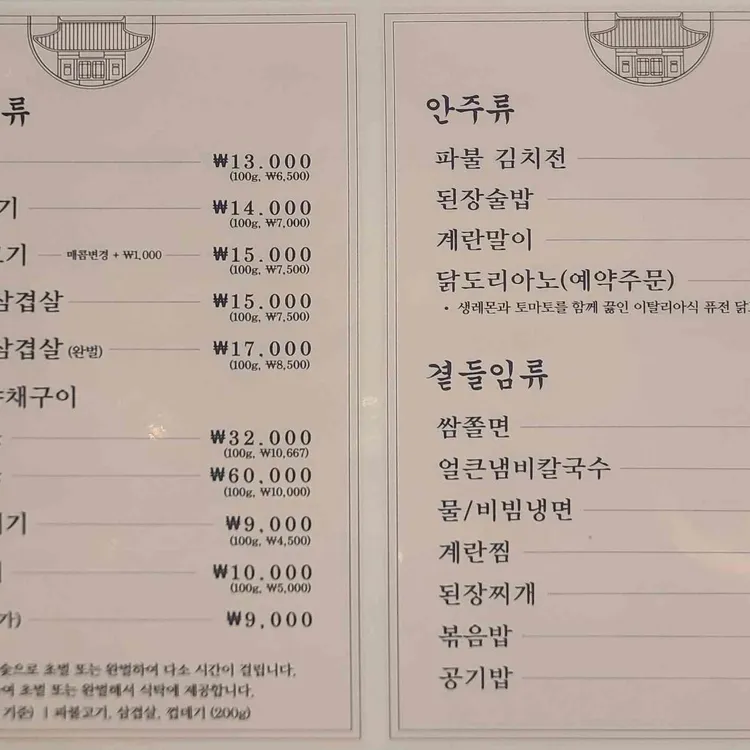 류
₩13.000
(100g, ₩6,500)
기
₩14.000
(100g, ₩7,000)
고기 매콤변경 + ₩1,000 ₩15.000
(100g, ₩7,500)
삼겹살 ₩15.000
(100g, ₩7,500)
삼겹살 (완벌) ₩17.000
(100g, ₩8,500)
채구이
₩32.000
(100g, ₩10,667)
₩60.000
(100g, ₩10,000)
기 ₩9.000
(100g, ₩4,500)
₩10.000
(100g, ₩5,000)
가) ₩9,000
숯으로 초벌 또는 완벌하여 다소 시간이 걸립니다.
여 초벌 또는 완벌해서 식탁에 제공합니다.
기준) | 파불고기, 삼겹살, 껍데기 (200g)
안주류
파불 김치전
된장술밥
계란말이
닭도리아노(예약주문)
• 생레몬과 토마토를 함께 끓인 이탈리아식 퓨전 닭
곁들임류
쌈쫄면
얼큰냄비칼국수
물/비빔냉면
계란찜
된장찌개
볶음밥
공기밥